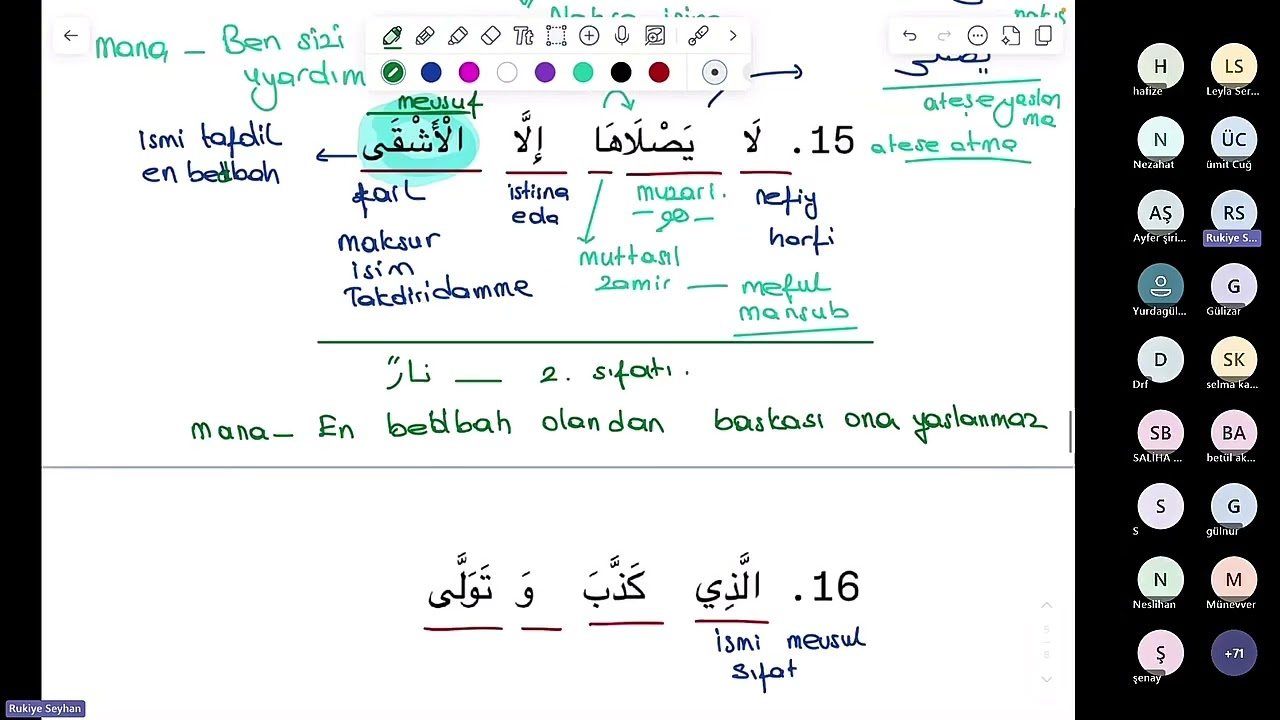 mana — Ben sizi
yyardım
Tt
ateşe yaslan
ma
ateşe atma
mevsuf
15. لَا يَصْلَاهَا إِلَّا الْأَشْقَى
ismi tafdil
en bedbah
fail
maksur
isim
Takdiri damme
istisna
eda
muzari.
muttasıl
zamir — meful
mansub
nefiy
harfi
نارً — 2. sıfatı.
mana — En bedbah olandan baskası ona yaslanmaz
16. الَّذِي كَذَّبَ وَ تَوَلَّى
ismi mevsul
sıfat
5
8
Rukiye Seyhan
H
hafize
LS
Leyla Ser...
N
Nezahat
ÜC
ümit Cuğ
AŞ
Ayfer şiri...
RS
Rukiye S...
Yurdagül...
G
Gülizar
D
Drf
SK
selma ka...
SB
SALİHA ...
BA
betül ak...
S
S
G
gülnur
N
Neslihan
M
Münevver
Ş
şenay
+71